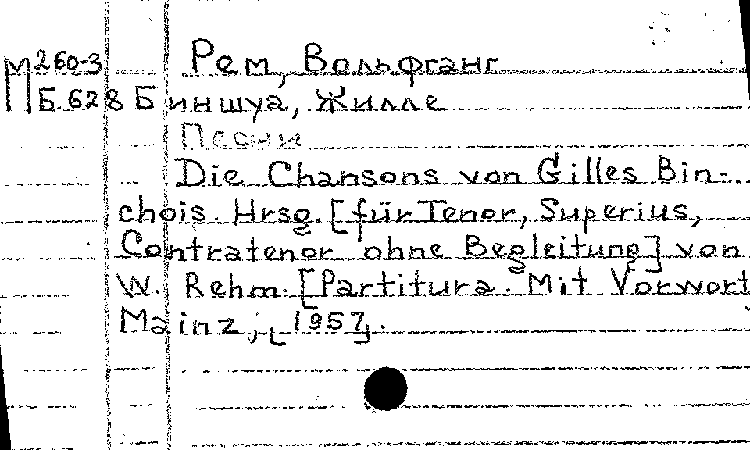 М 260-3 Рем, Вольфганг
Б 628 Биншуа, Жилле
Песни
Die Chansons von Gilles Bin-
chois. Hrsg. [für Tenor, Superius,
Contratenor ohne Begleitung] von
W. Rehm. [Partitura. Mit Vorwort
Mainz, [1957].